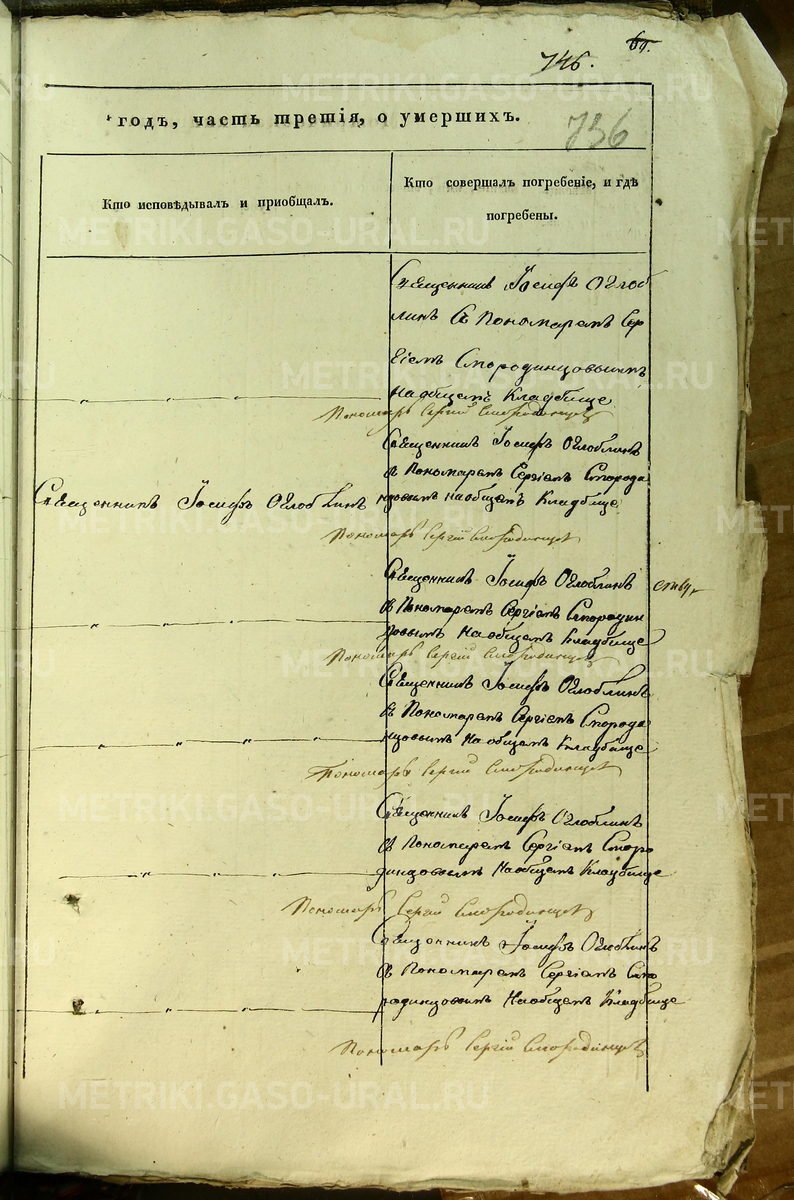 746.
69.
736
годъ, часть третія, о умершихъ.
Кто исповѣдывалъ и пріобщалъ.
Кто совершалъ погребеніе, и гдѣ
погребены.
Священникъ Іосифъ Оглоб
линъ съ Пономаремъ Сер
гіемъ Смородинцовымъ
на общемъ Кладбище
Пономарь Сергій Смородинцовъ
Священникъ Іосифъ Оглоблинъ
Священникъ Іосифъ Оглоблинъ
съ Пономаремъ Сергіемъ Смороди
нцовымъ на общемъ Кладбище
Пономарь Сергій Смородинцовъ
Священникъ Іосифъ Оглоблинъ
съ Пономаремъ Сергіемъ Смородин
цовымъ на общемъ Кладбище
Пономарь Сергій Смородинцовъ
Священникъ Іосифъ Оглоблинъ
съ Пономаремъ Сергіемъ Смороди
нцовымъ на общемъ Кладбище
Пономарь Сергій Смородинцовъ
Священникъ Іосифъ Оглоблинъ
съ Пономаремъ Сергіемъ Сморо
динцовымъ на общемъ Кладбище
Пономарь Сергій Смородинцовъ
Священникъ Іосифъ Оглоблинъ
съ Пономаремъ Сергіемъ Смо
родинцовымъ на общемъ Кладбище
Пономарь Сергій Смородинцовъ
METRIKI.GASO-URAL.RU